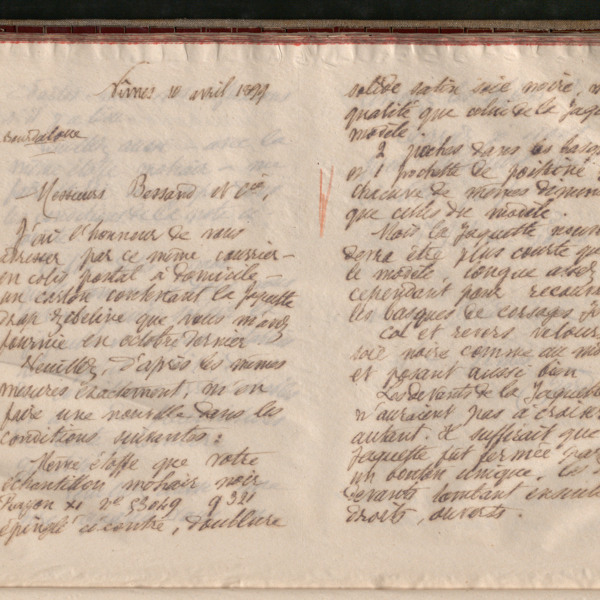 Nîmes 10 avril 1899
Bourdaloue
Messieurs Bessand et Cie,
J'ai l'honneur de vous
adresser par ce même courrier –
en colis postal à domicile –
un carton contenant la jaquette
drap zibeline que vous m'avez
fournie en octobre dernier
Veuillez, d'après les mêmes
mesures exactement, m'en
faire une nouvelle dans les
conditions suivantes :
Même étoffe que votre
échantillon mohair noir
No 53049 9321
épinglé ci contre, doublure
solide satin soie noire, m
qualité que celui de la jaqu
modèle.
2 poches dans les basq
et 1 pochette de poitrine
chacune de mêmes dimens
que celles du modèle.
Mais la jaquette nouv
devra être plus courte qu
le modèle, longue assez
cependant pour recouvri
les basques de corsages
Col et revers velour
soie noire comme au mo
et posant aussi bien
Les devants de la jaquett
n'auraient pas à croiser
autant. Il suffirait que
jaquette fut fermée par
un bouton unique, les
devants tombant ensuite
droits, ouverts.